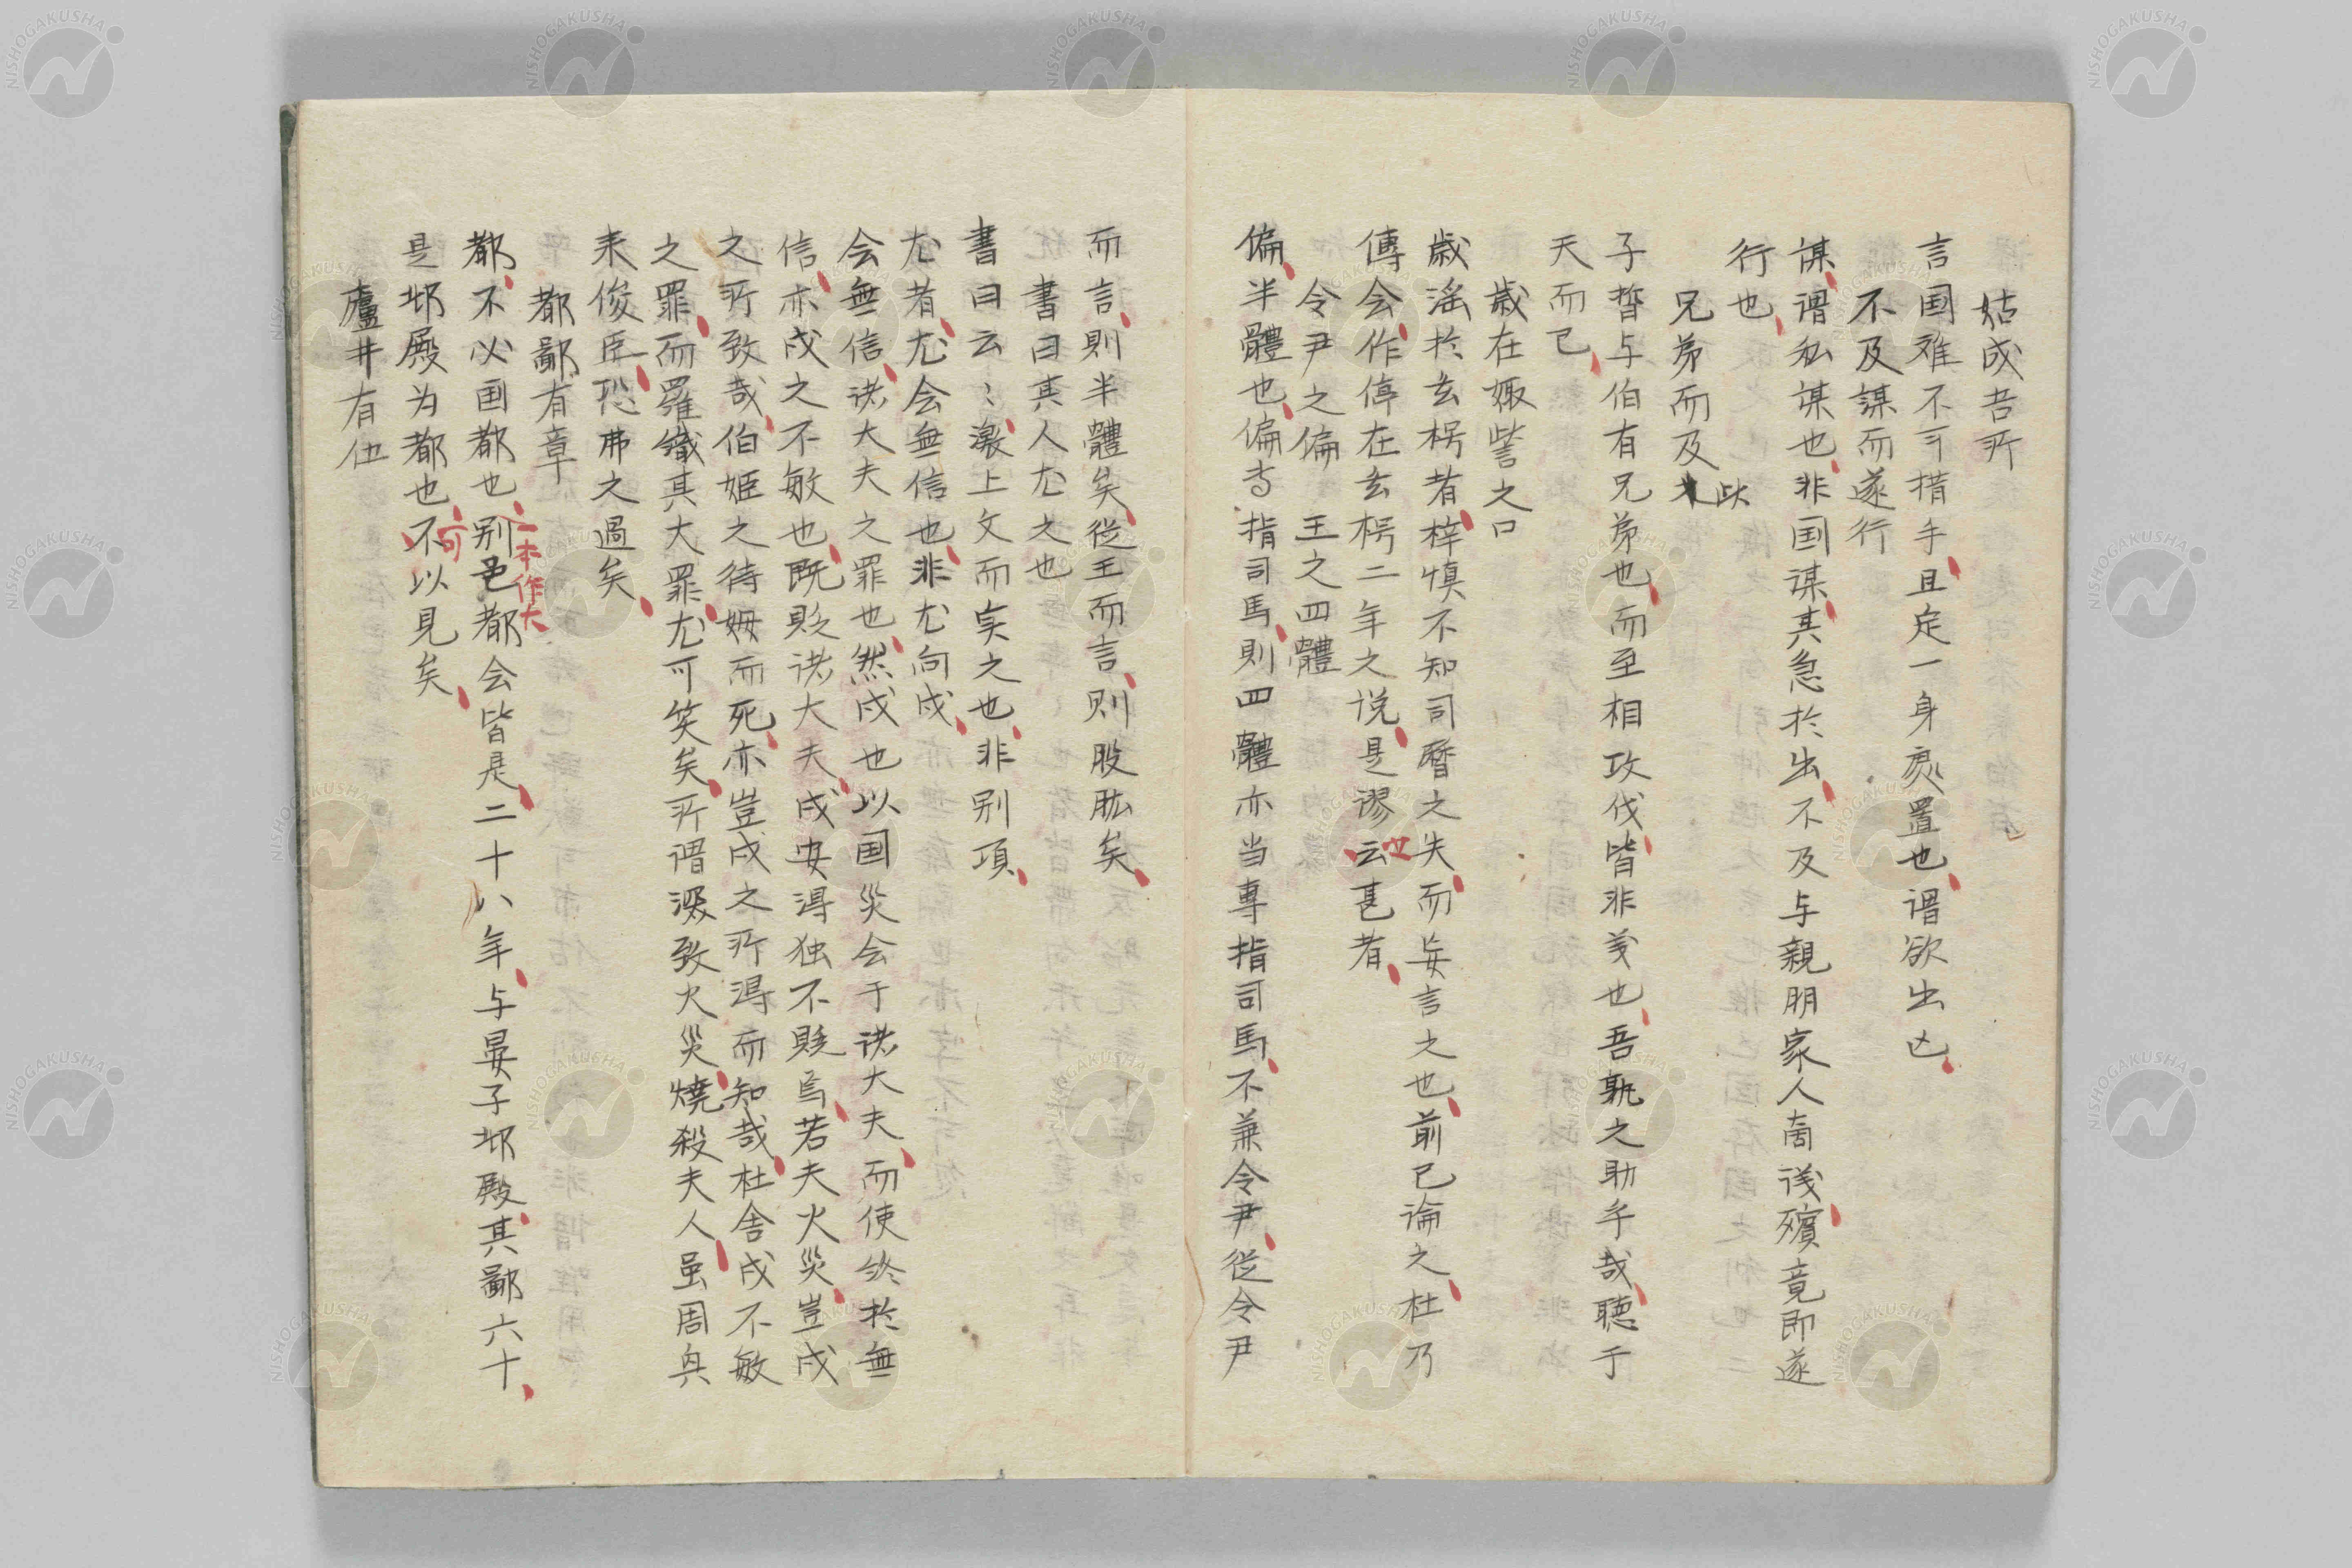 姑成吾所
言国难不可措手且定一身処置也谓欲出亡
不及謀而遂行
謀谓私谋也非国谋其急於出不及与親朋家人商议殯竟即遂
行也
兄弟而及此
子晳与伯有兄弟也而至相攻伐皆非义也吾孰之助乎哉聴于
天而已
歳在娵訾之口
歳滛於玄枵者梓慎不知司暦之失而妄言之也前已論之杜乃
傳会作停在玄枵二年之说是謬云甚者
令尹之偏 王之四體
偏半體也偏専指司馬則四體亦当專指司馬不兼令尹従令尹
而言則半體矣従王而言则股肱矣
書曰某人尤之也
書曰云〻激上文而实之也非别項
尤者尤会無信也非尤向戍
会無信诸大夫之罪也然戍也以国災会于诸大夫而使终於無
信亦戍之不敏也既貶诸大夫戍安得独不貶焉若夫火災豈戍
之所致哉伯姫之待姆而死亦豈戍之所得而知哉杜舎戍不敏
之罪而羅織其大罪尤可笑矣所谓深致火災燒殺夫人虽周興
来俊臣恐弗之過矣
都鄙有章
都不必国都也别邑都会皆是二十八年与晏子邶殿其鄙六十
一本作大
是邶殿为都也不可以見矣
廬井有伍